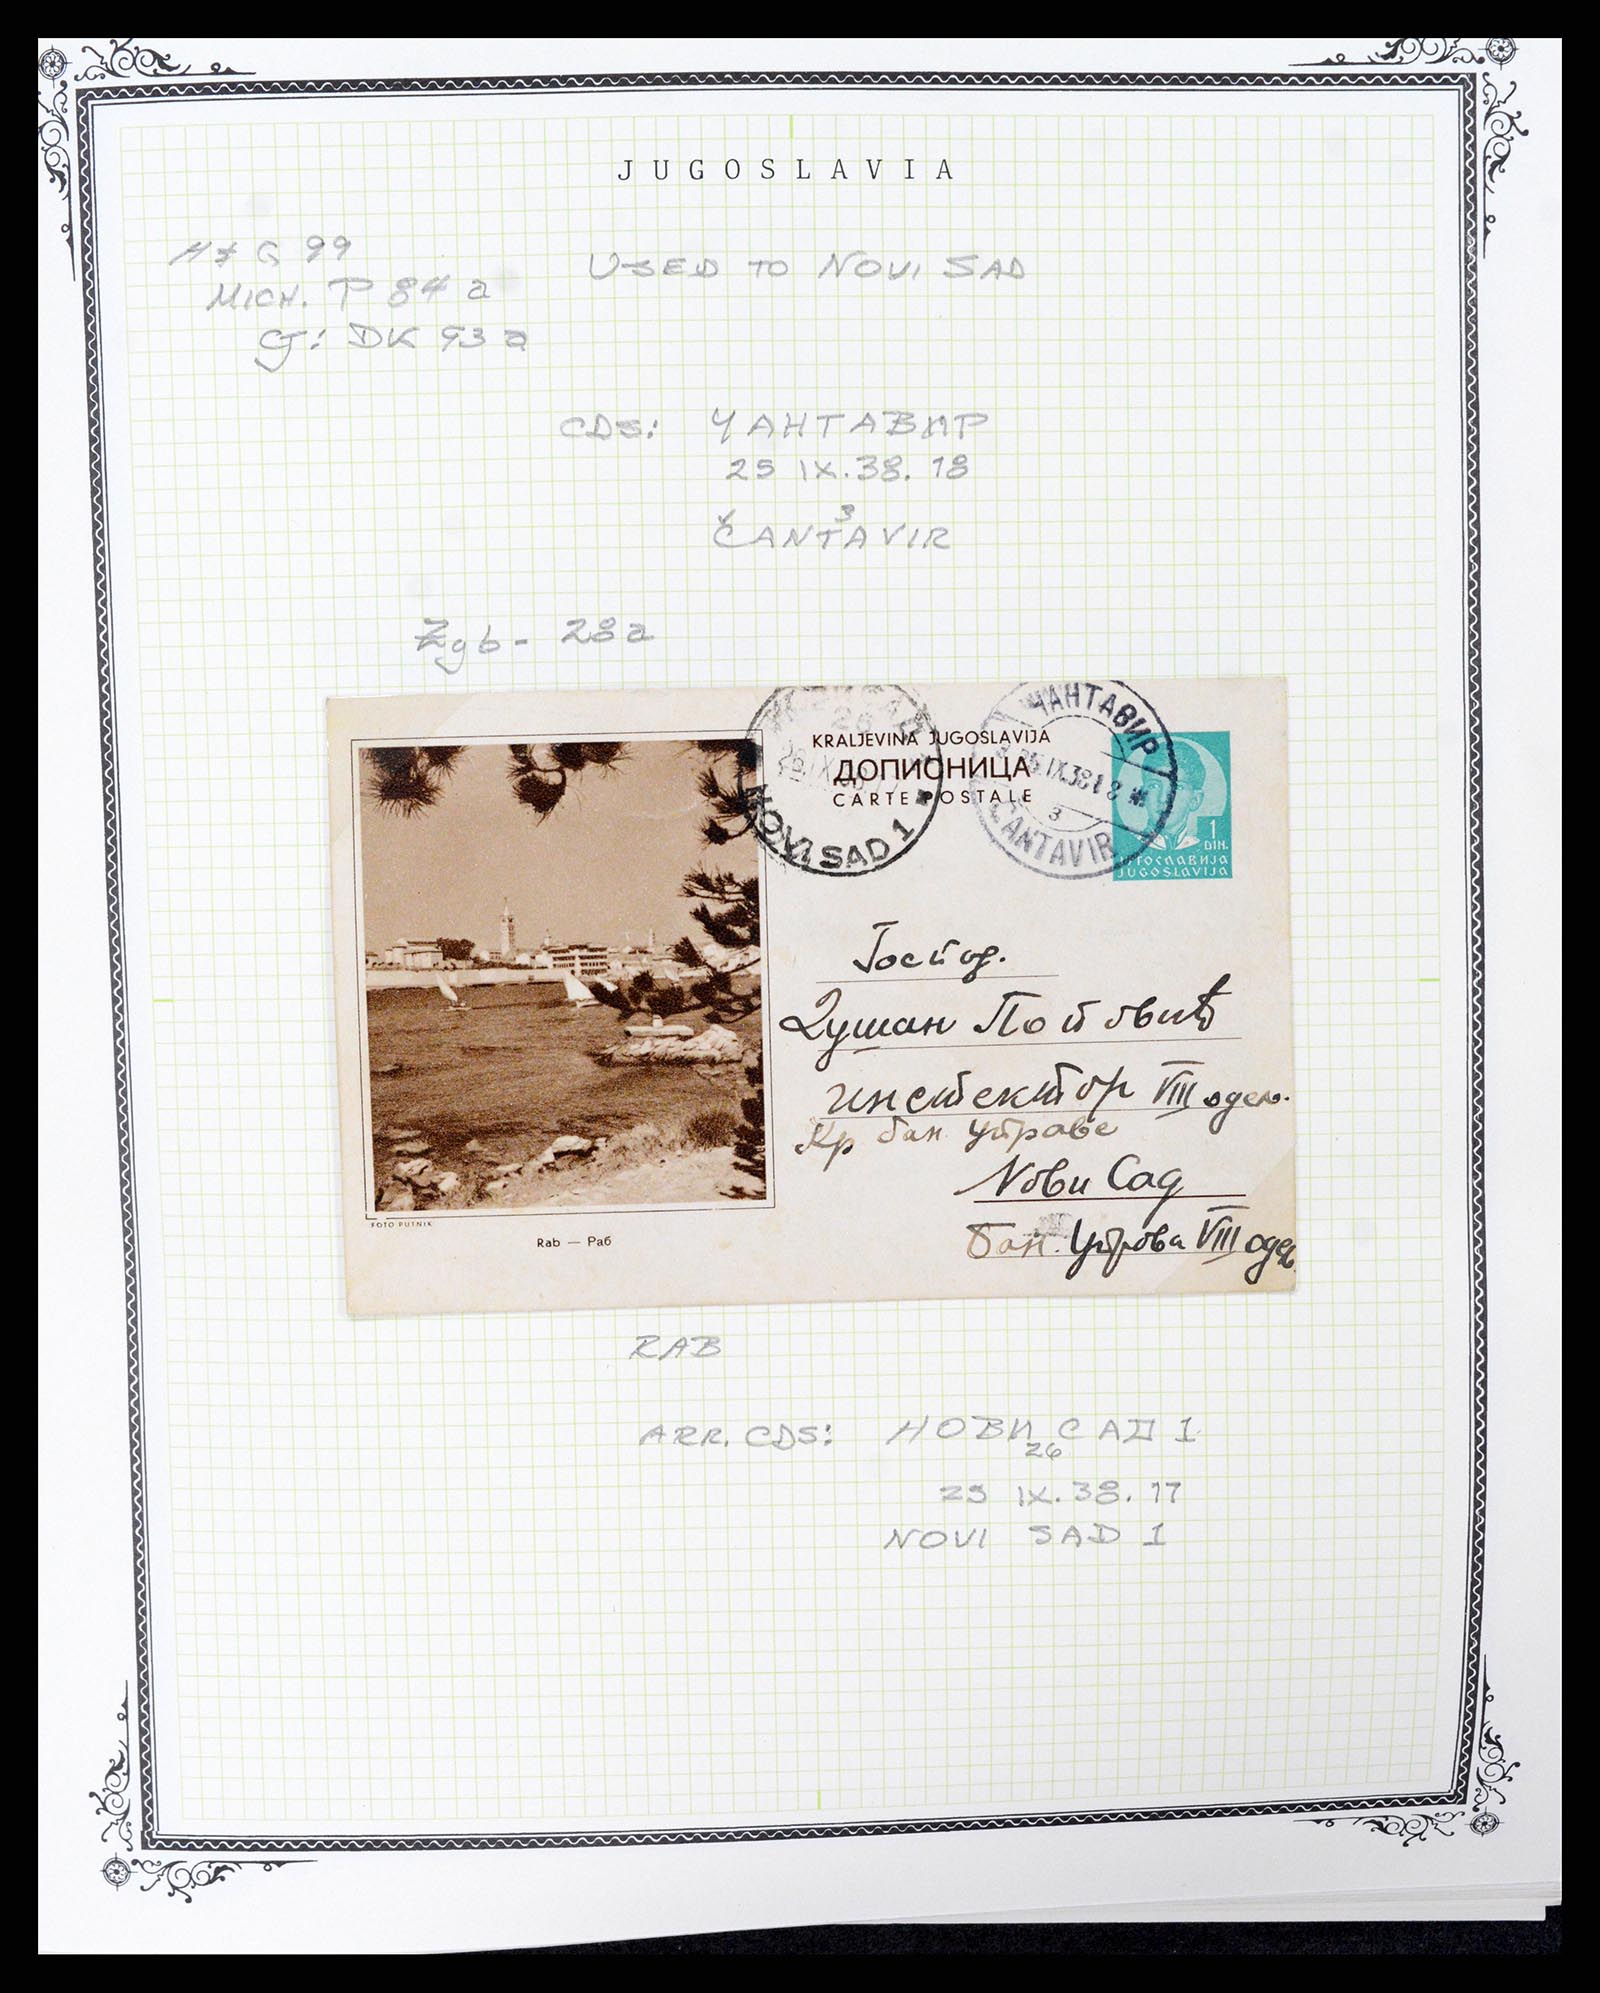 JUGOSLAVIA
H & G 99
MICH. P 84 a
CJ: DK 93 a
USED TO NOVI SAD
CDS: ЧАНТАВИР
25 IX.38.18
3
ČANTAVIR
Zgb - 28a
NOVI SAD 1
ЧАНТАВИР
25.IX.38 18
3
ČANTAVIR
KRALJEVINA JUGOSLAVIJA
ДОПИСНИЦА
CARTE POSTALE
1
DIN.
ЈУГОСЛАВИЈА
JUGOSLAVIJA
Господ.
Душан Поповић
инспектор VIII одељ.
Кр бан Управе
Нови Сад
Бан. Управа VIII одељ.
FOTO PUTNIK
Rab — Раб
RAB
ARR. CDS: НОВИ САД 1
26
25 IX.38.17
NOVI SAD 1